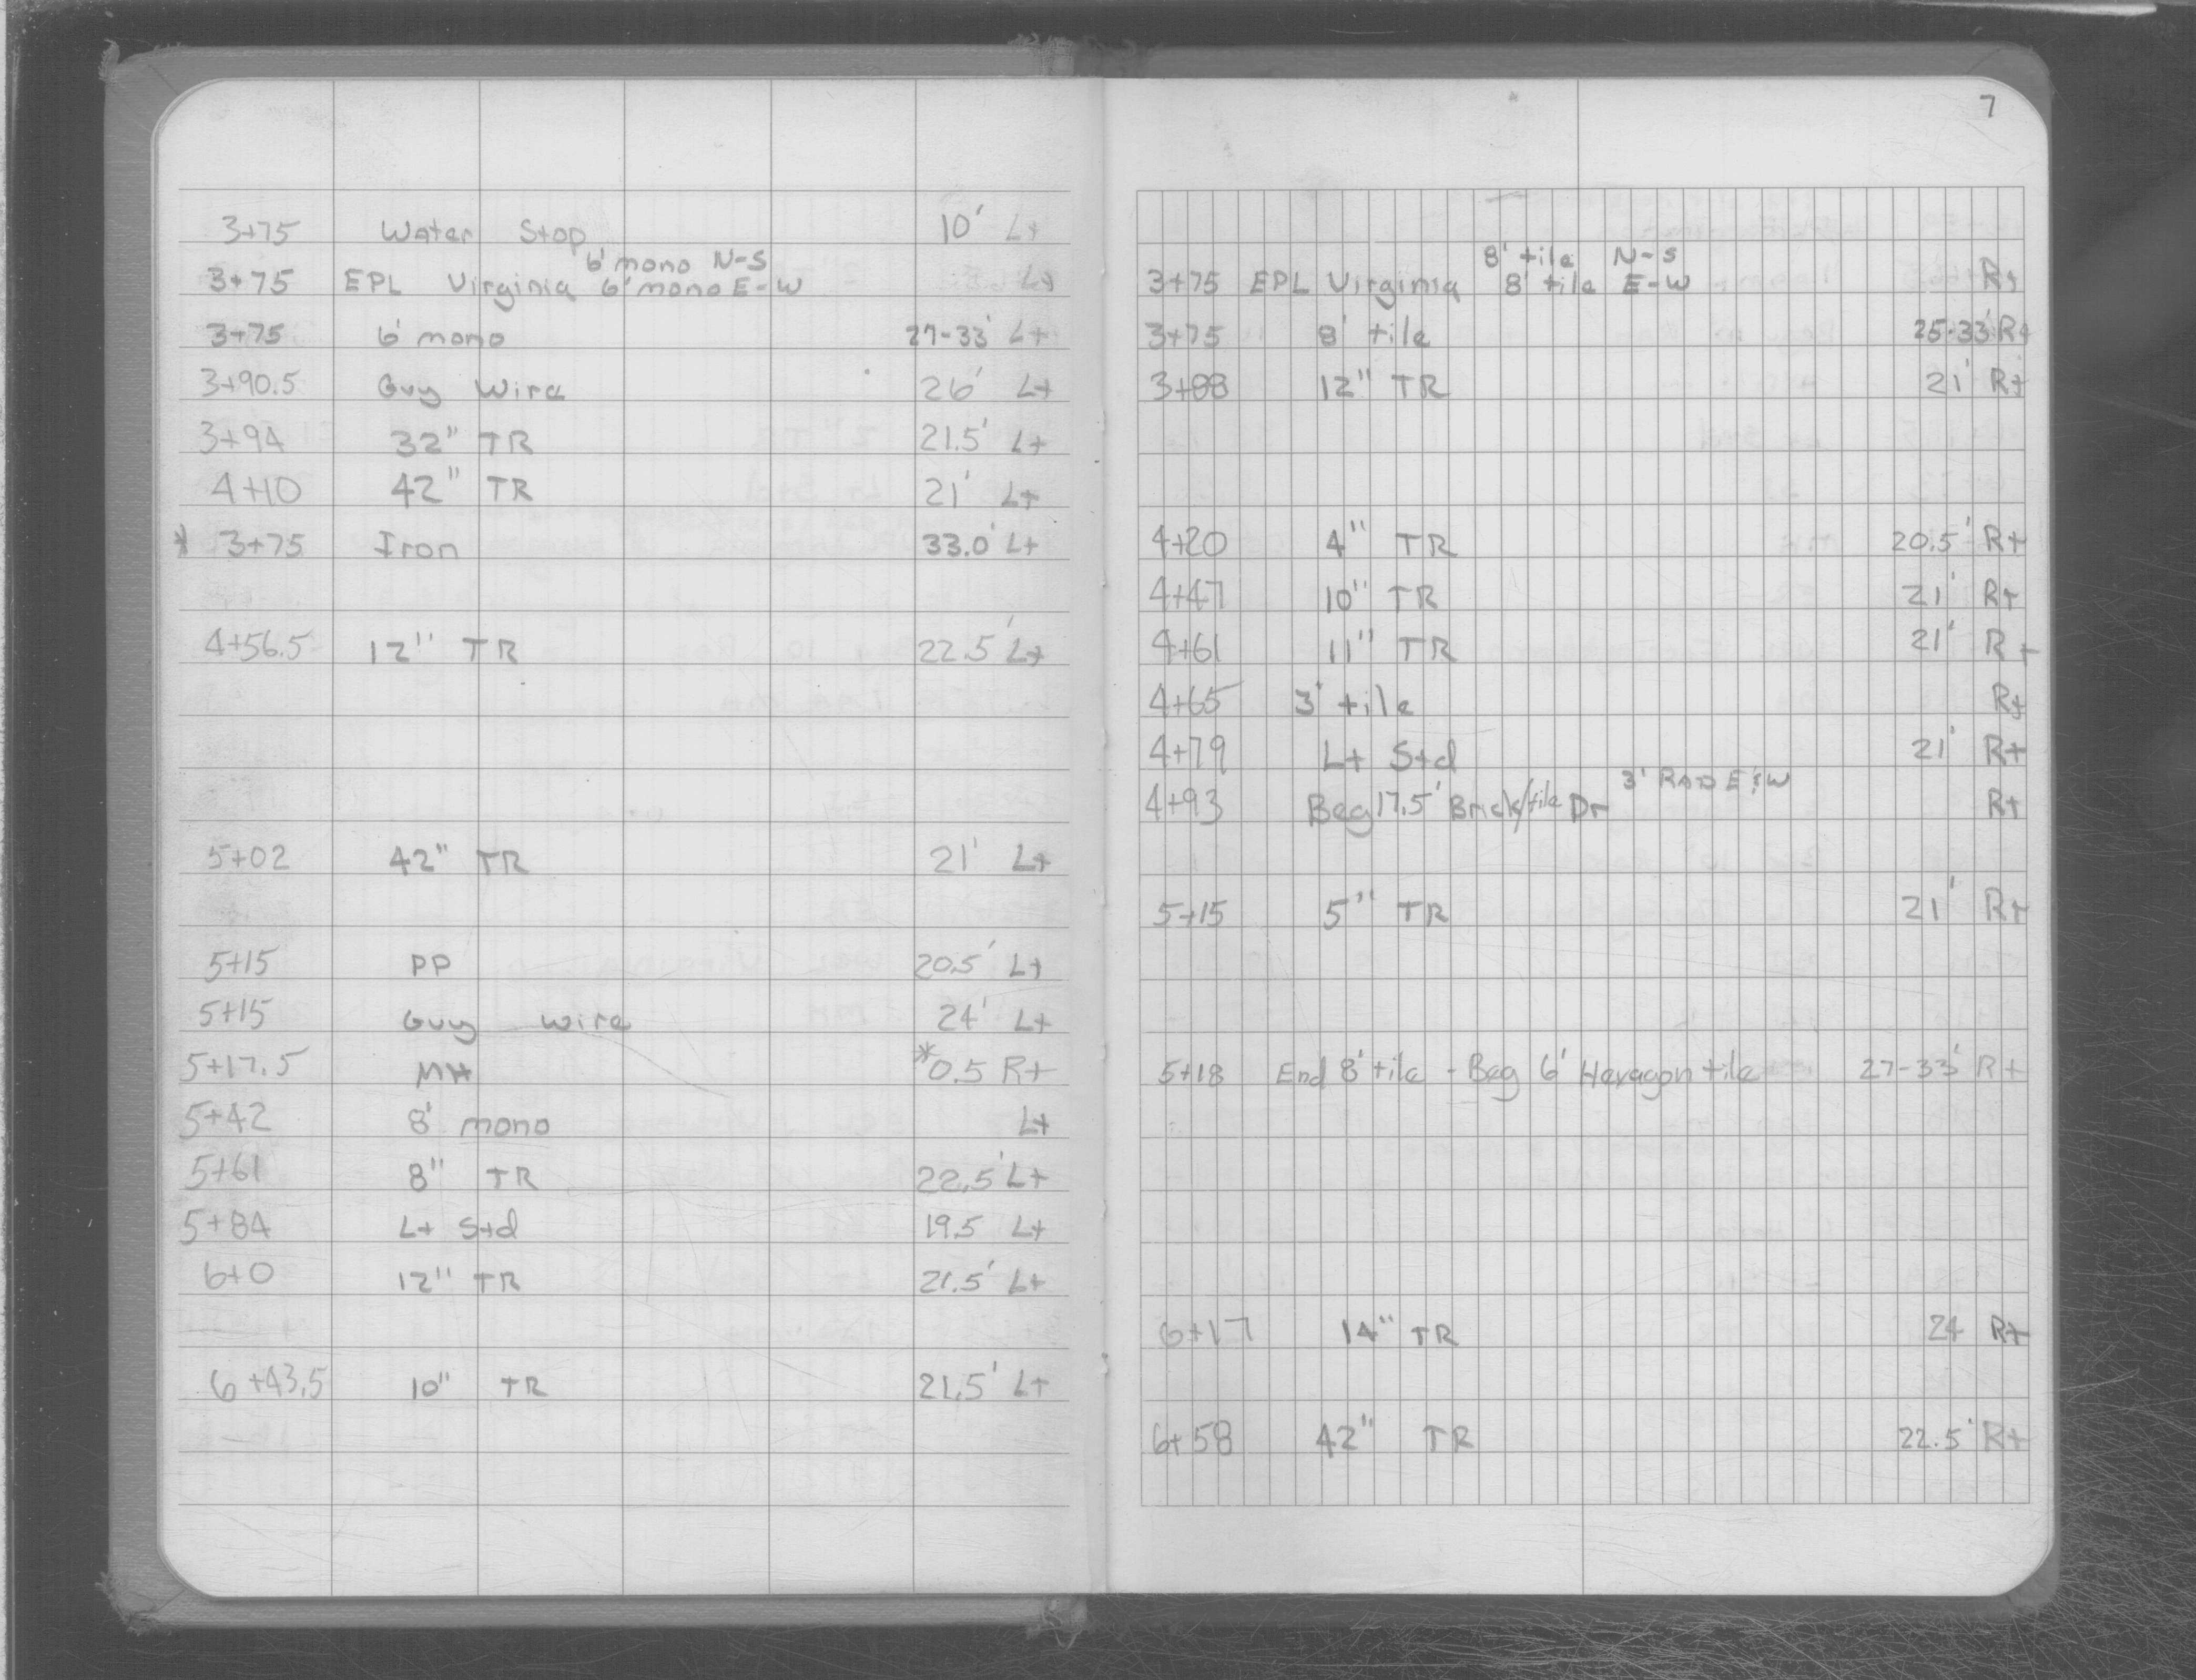 3+75 Water Stop 10' Lt
6' mono N-S
3+75 EPL Virginia 6' mono E-W Lt
3+75 6' mono 27-33' Lt
3+90.5 Guy Wire 26' Lt
3+94 32" TR 21.5' Lt
4+10 42" TR 21' Lt
* 3+75 Iron 33.0' Lt
4+56.5 12" TR 22.5' Lt
5+02 42" TR 21' Lt
5+15 PP 20.5' Lt
5+15 Guy wire 24' Lt
5+17.5 MH *0.5 Rt
5+42 8' mono Lt
5+61 8" TR 22.5' Lt
5+84 Lt Std 19.5 Lt
6+0 12" TR 21.5' Lt
6+43.5 10" TR 21.5' Lt
7
8' tile N-S
3+75 EPL Virginia 8' tile E-W Rt
3+75 8' tile 25-33' Rt
3+88 12" TR 21' Rt
4+20 4" TR 20.5' Rt
4+47 10" TR 21' Rt
4+61 11" TR 21' Rt
4+65 3' tile Rt
4+79 Lt Std 21' Rt
3' RAD E & W
4+93 Beg 17.5' Brick/tile Dr Rt
5+15 5" TR 21' Rt
5+18 End 8' tile - Beg 6' Hexagon tile 27-33' Rt
6+17 14" TR 24 Rt
6+58 42" TR 22.5' Rt